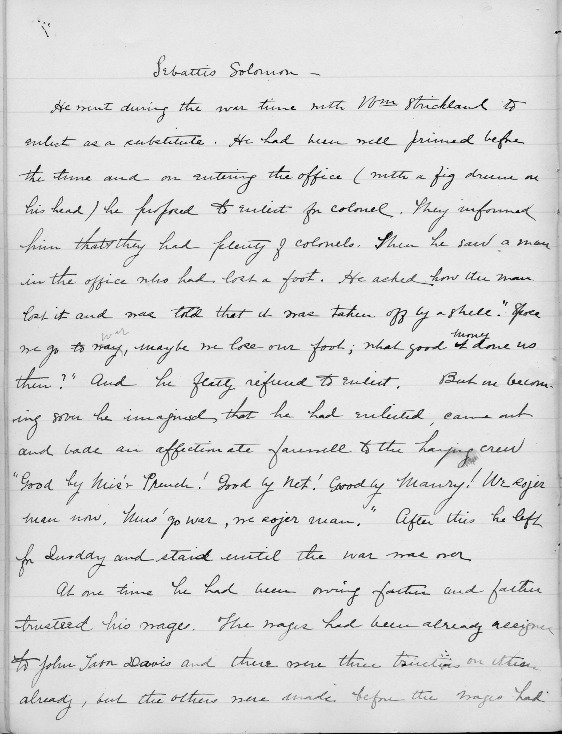 Sebattis Solomon –
He went during the war time with Wm Strickland to
enlist as a substitute. He had been well primed before
the time and on entering the office (with a fig drum on
his head) he proposed to enlist for colonel. They informed
him that they had plenty of colonels. Then he saw a man
in the office who had lost a foot. He asked how the man
lost it and was told that it was taken off by a shell. "Spose
war
money
we go to way, maybe we lose our foot; what good it done us
then?" And he flatly refused to enlist. But on becom-
ing sober he imagined that he had enlisted, came out
and bade an affectionate farewell to the haying crew
"Good by Mis'r French! Good by Net! Good by Manry! We sojer
man now. Mus' go war, we sojer man." After this he left
for Quoddy and staid until the war was over
At one time he had been owing father and father
trusteed his wages. The wages had been already assigned
to John Davis and there were three trustees on them
already, but the others were made before the wages had